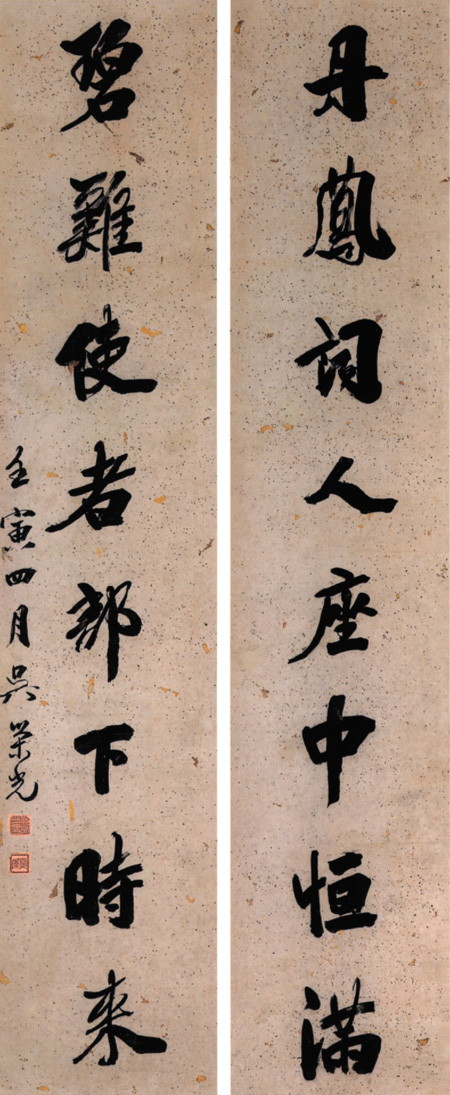 丹鳳詞人座中恒滿
碧雞使者部下時来
壬寅四月吳榮光